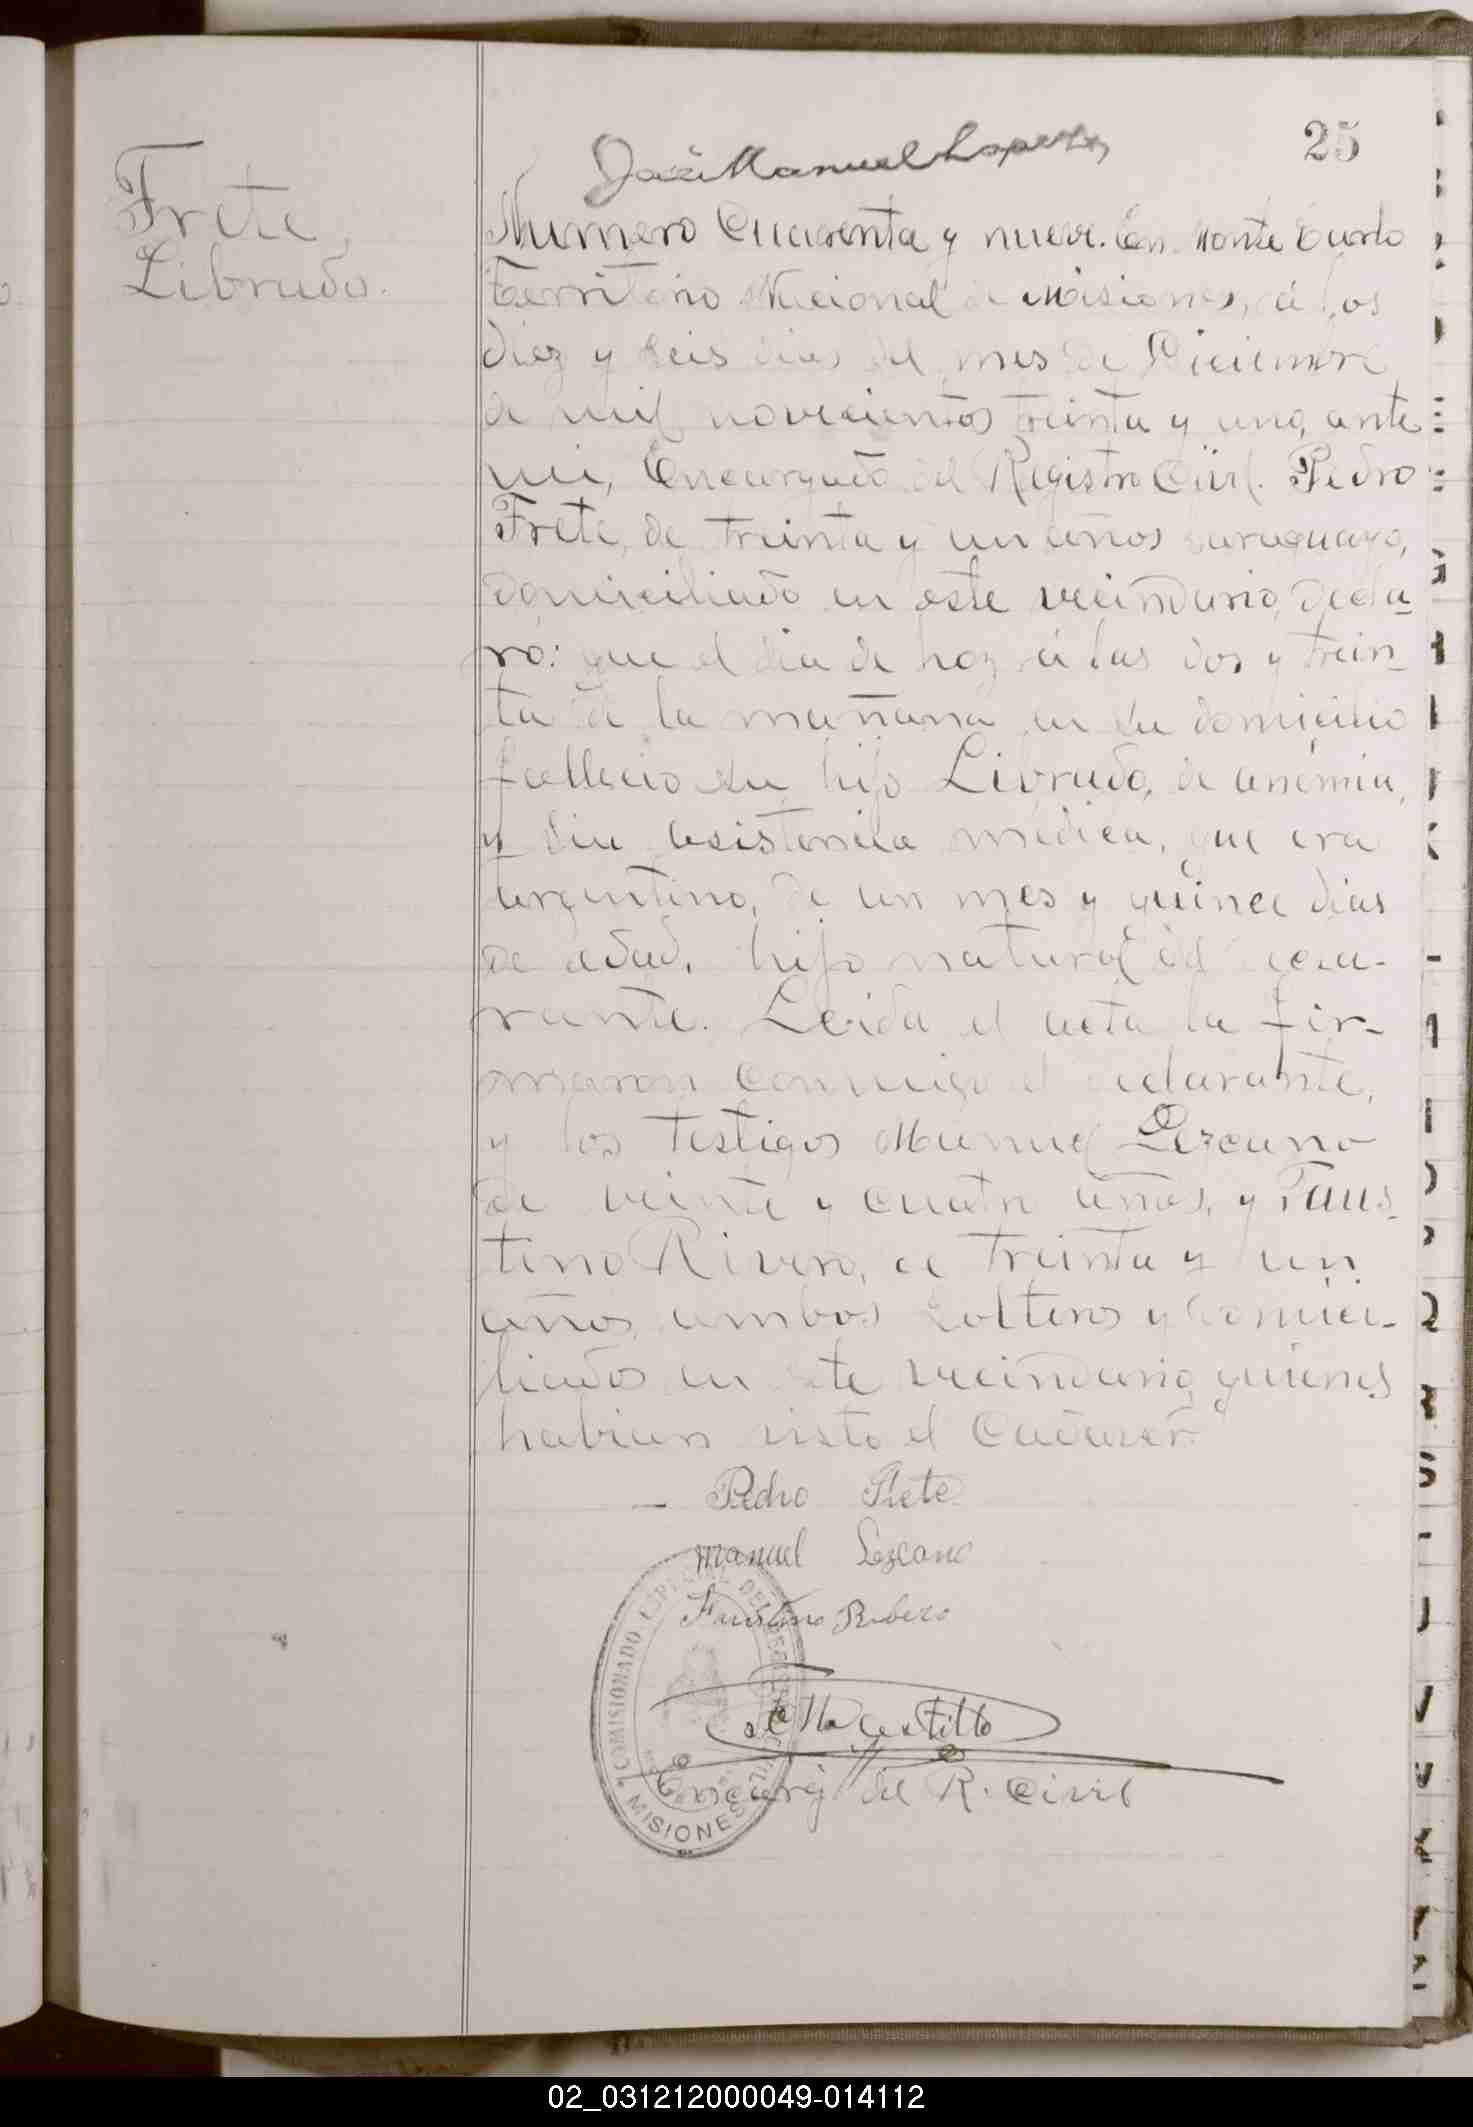 25
José Manuel Lopez
Frete,
Librado.
Numero Cuarenta y nueve. En Monte Carlo
Territorio Nacional de Misiones, á los
diez y seis dias del mes de Diciembre
de mil novecientos treinta y uno, ante
mi, Encargado del Registro Civil. Pedro
Frete, de treinta y un años
domiciliado en este vecindario, decla-
ró: que el dia de hoy á las dos y trein-
ta de la mañana en su domicilio
fallecio su hijo Librado, de anémia,
y sin asistencia médica, que era
argentino, de un mes y quince dias
de edad, hijo natural del decla-
rante. Leida el acta la fir-
maron conmigo el declarante,
y los testigos Manuel Lezcano
de veinte y cuatro años, y Faus-
tino Rivero, de treinta y un
años, ambos solteros y domici-
liados en este vecindario, quienes
habian visto el Cadaver.
Pedro Frete
Manuel Lezcano
Faustino Ribero
COMISIONADO ESPECIAL DEL REGISTRO CIVIL
MISIONES
Castillo
Encarg. del R. Civil
02_031212000049-014112